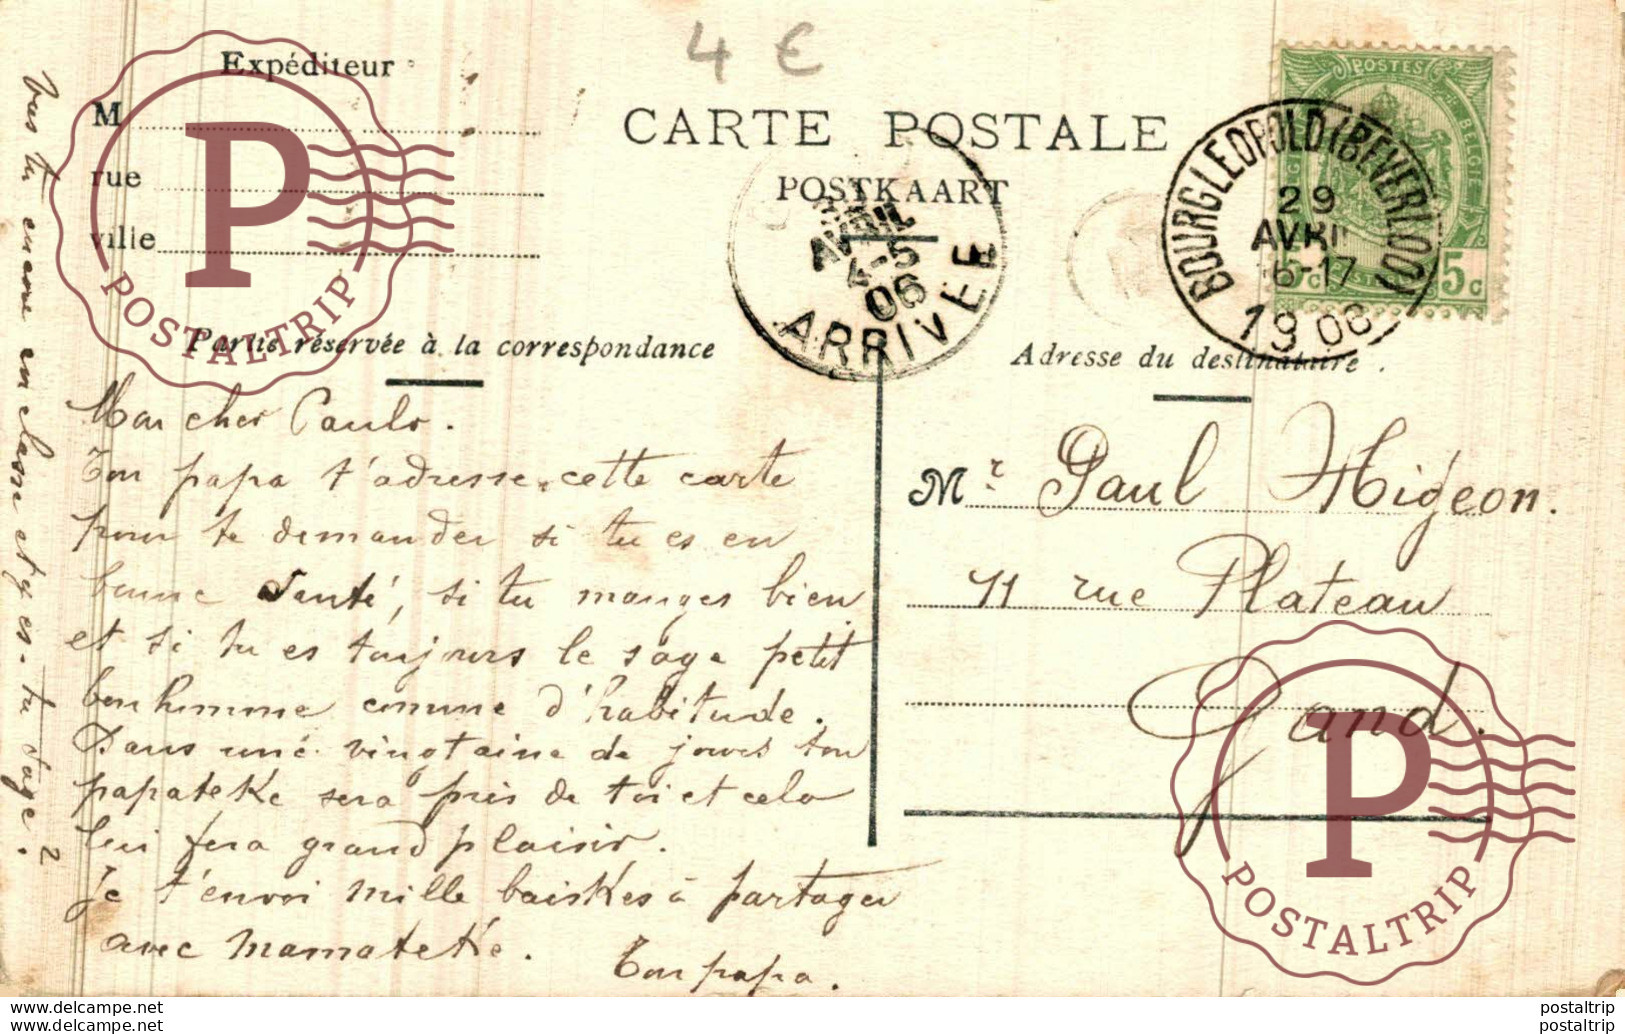 4 €
Expéditeur
M
rue
ville
CARTE POSTALE
POSTKAART
AVRIL
4-5
06
ARRIVÉE
BOURG LEOPOLD (BEVERLOO)
29
AVRIL
16-17
1906
POSTES
BELGIE
5c
Partie réservée à la correspondance
Adresse du destinataire.
Mon cher Paulo.
Ton papa t'adresse cette carte
pour te demander si tu es en
bonne Santé, si tu manges bien
et si tu es toujours le sage petit
bonhomme comme d'habitude.
Dans une vingtaine de jours ton
papateke sera près de toi et cela
lui fera grand plaisir.
Je t'envoi mille baiskes à partager
avec Mamateke.
Ton papa.
Vas tu encore en classe et y es-tu Sage?
Mr. Paul Higeon.
11 rue Plateau
Gand.
P
POSTALTRIP
P
POSTALTRIP
postaltrip
postaltrip
postaltrip
postaltrip